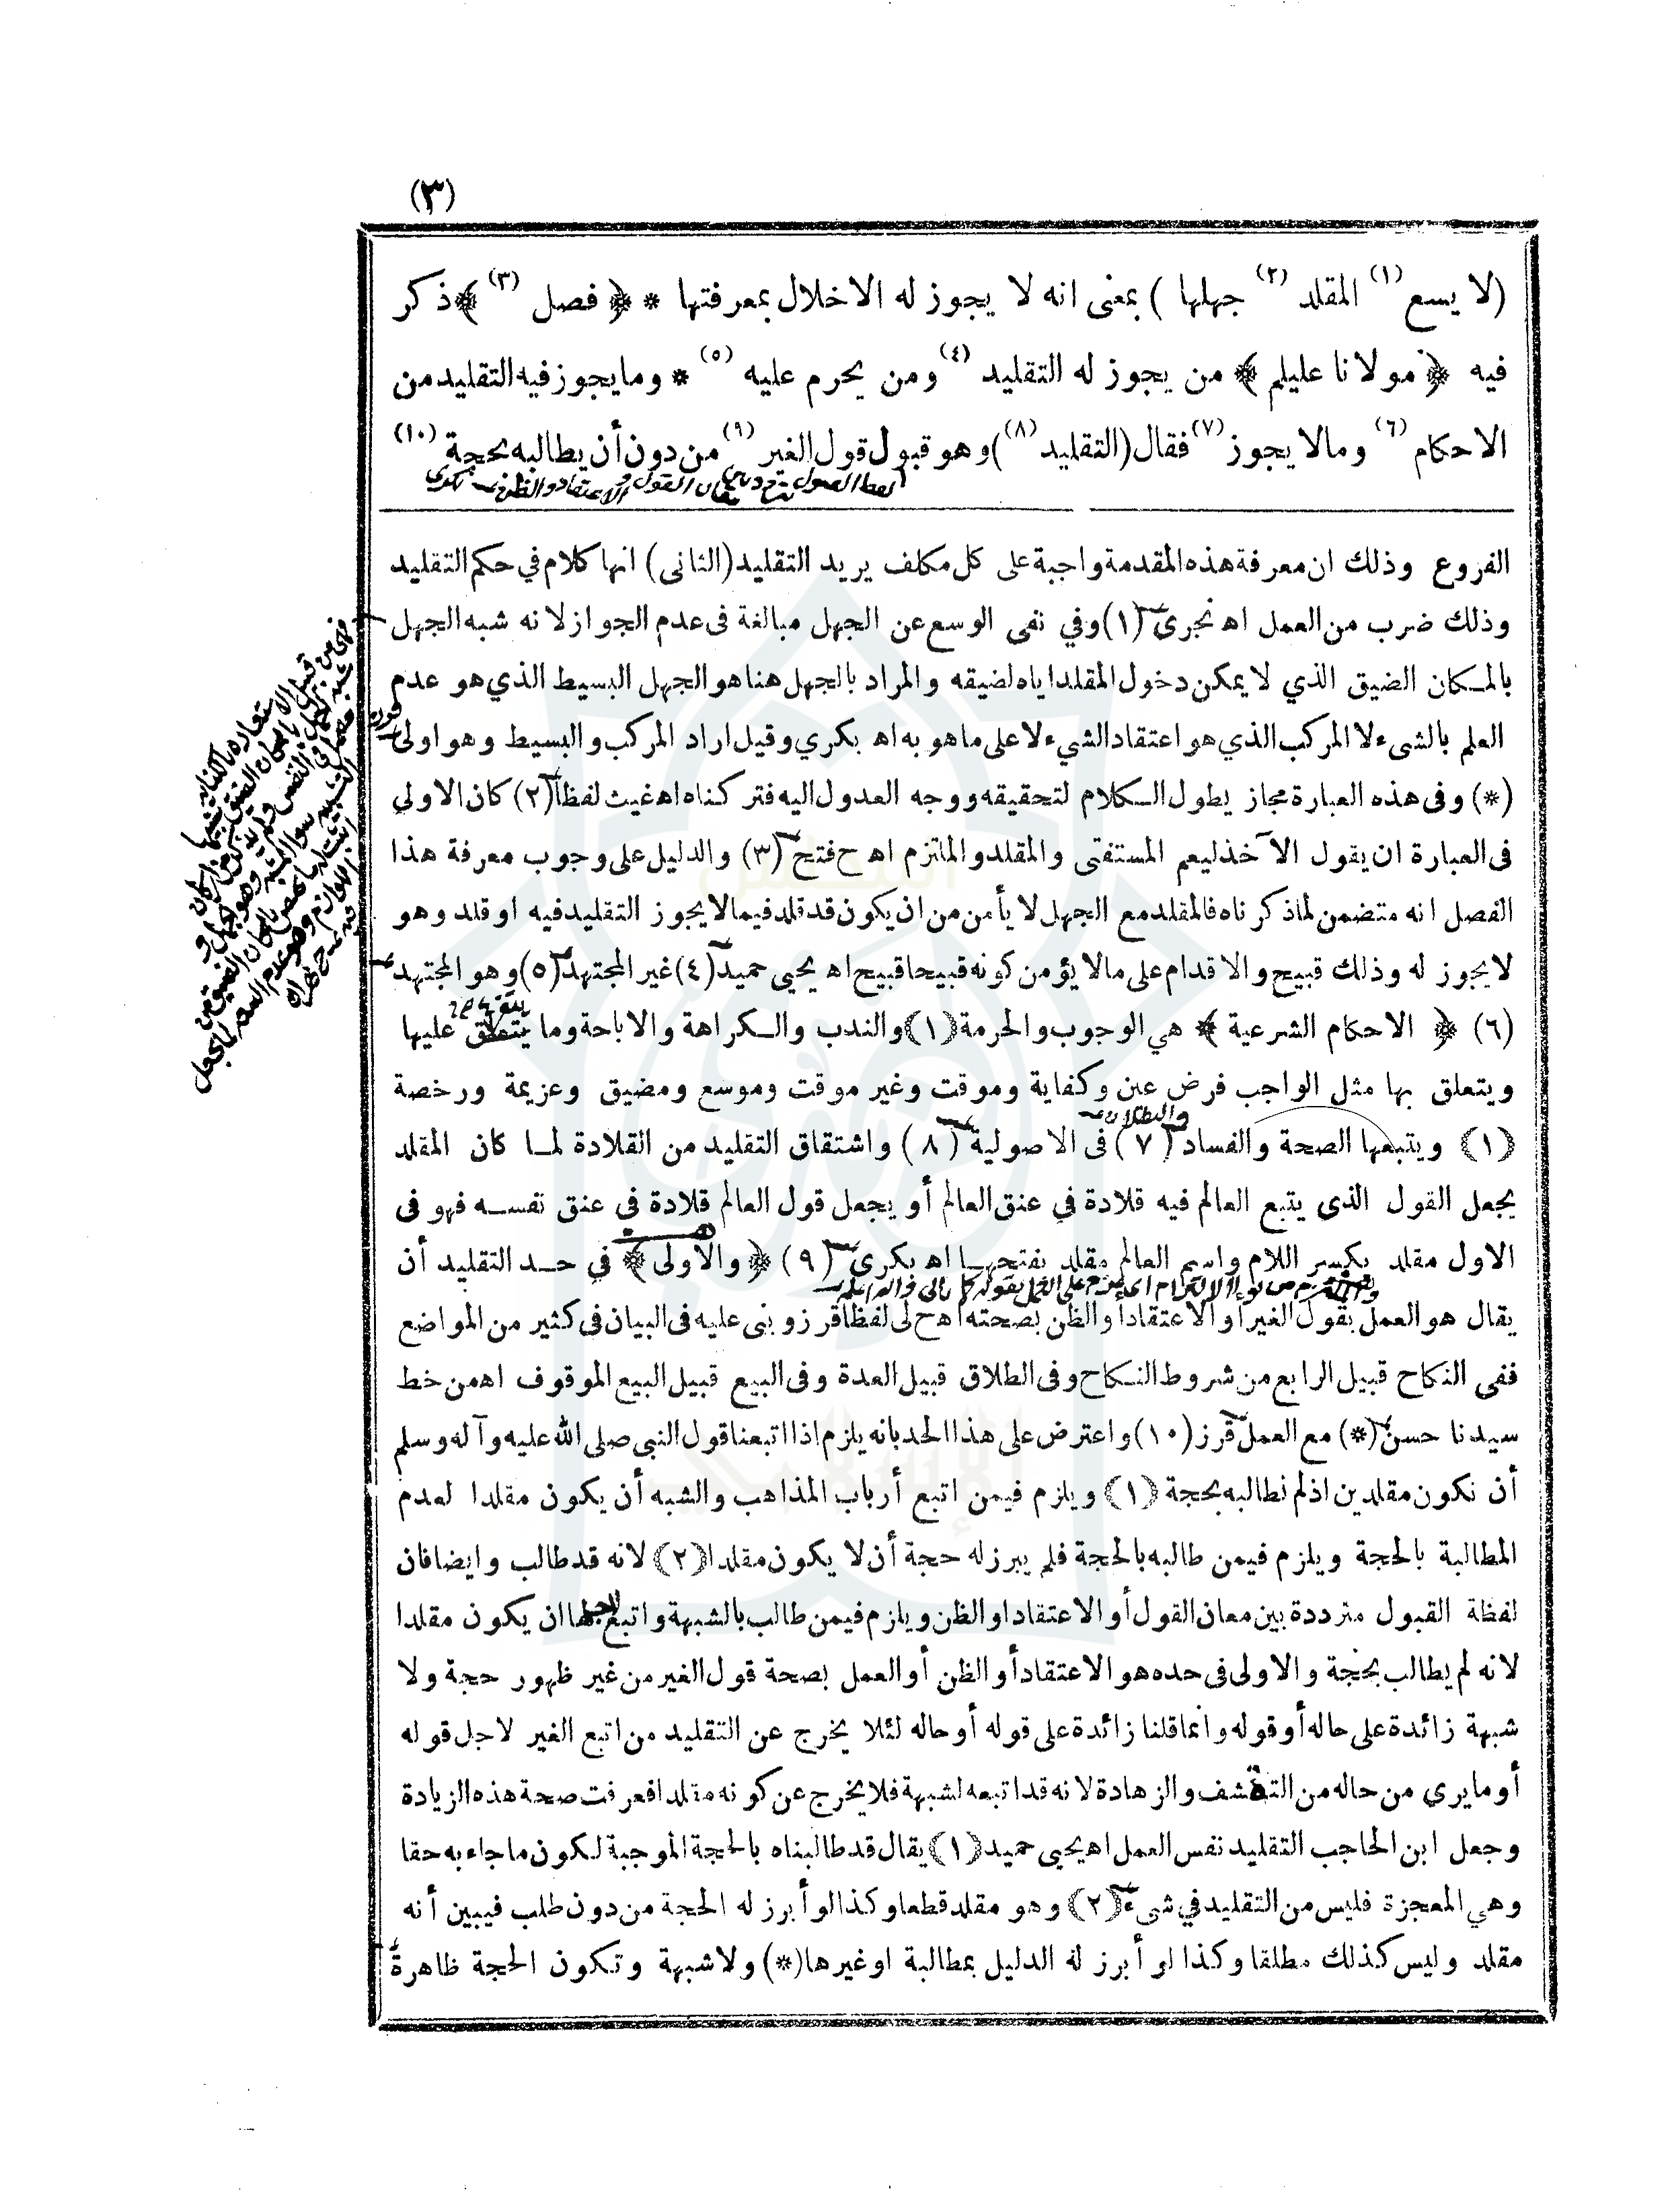 (٣)
(لا يسع (١) المقلد (٢) جهلها ) بمعنى انه لا يجوز له الاخلال بمعرفتها * ﴿ فصل (٣) ﴾ ذكر
فيه ﴿ مولانا عليلم ﴾ من يجوز له التقليد (٤) ومن يحرم عليه (٥) * وما يجوز فيه التقليد من
الاحكام (٦) ومالا يجوز (٧) فقال (التقليد (٨) ) وهو قبول قول الغير (٩) من دون أن يطالبه بحجة (١٠)
الفروع وذلك ان معرفة هذه المقدمة واجبة على كل مكلف يريد التقليد (الثانى) انها كلام في حكم التقليد
وذلك ضرب من العمل اه نجرى (١) وفي نفى الوسع عن الجهل مبالغة فى عدم الجواز لانه شبه الجهل
بالمكان الضيق الذي لا يمكن دخول المقلد اياه لضيقه والمراد بالجهل هنا هو الجهل البسيط الذي هو عدم
العلم بالشىء لا المركب الذي هو اعتقاد الشيء لا على ما هو به اه بكري وقيل اراد المركب والبسيط وهو اولى
(*) وفى هذه العبارة مجاز يطول الكلام لتحقيقه ووجه العدول اليه فتركناه اه غيث لفظاً (٢) كان الاولي
فى العبارة ان يقول الآخذ ليعم المستفتى والمقلد والملتزم اه ح فتح (٣) والدليل على وجوب معرفة هذا
الفصل انه متضمن لما ذكرناه فالمقلد مع الجهل لا يأمن من ان يكون قد قلد فيما لا يجوز التقليد فيه او قلد وهو
لا يجوز له وذلك قبيح والاقدام على مالا يؤمن كونه قبيحا قبيح اه يحيى حميد (٤) غير المجتهد (٥) وهو المجتهد
(٦) ﴿ الاحكام الشرعية ﴾ هي الوجوب والحرمة (١) والندب والكراهة والاباحة وما يتعلق عليها
ويتعلق بها مثل الواجب فرض عين وكفاية وموقت وغير موقت وموسع ومضيق وعزيمة ورخصة
والبطلان
(١) ويتبعها الصحة والفساد (٧) فى الاصولية (٨) واشتقاق التقليد من القلادة لما كان المقلد
يجعل القول الذى يتبع العالم فيه قلادة في عنق العالم أو يجعل قول العالم قلادة في عنق نفسه فهو فى
الاول مقلد بكسر اللام واسم العالم مقلد بفتحها اه بكرى (٩) ﴿ والأولى ﴾ في حد التقليد أن
يقال هو العمل بقول الغير أو الاعتقاد أو الظن بصحته اه ح لى لفظا قرز وبنى عليه فى البيان فى كثير من المواضع
ففى النكاح قبيل الرابع من شروط النكاح وفى الطلاق قبيل العدة وفى البيع قبيل البيع الموقوف اه من خط
سيدنا حسن (*) مع العمل قرز (١٠) واعترض على هذا الحد بانه يلزم اذا اتبعنا قول النبي صلى الله عليه وآله وسلم
أن نكون مقلدين اذ لم نطالبه بحجة (١) ويلزم فيمن اتبع أرباب المذاهب والشبه أن يكون مقلدا لعدم
المطالبة بالحجة ويلزم فيمن طالبه بالحجة فلم يبرز له حجة أن لا يكون مقلدا (٢) لانه قد طالب وايضا فان
لفظة القبول مترددة بين معان القول أو الاعتقاد او الظن ويلزم فيمن طالب بالشبهة واتبع لاجلها ان يكون مقلدا
لانه لم يطالب بحجة والاولى فى حده هو الاعتقاد أو الظن أو العمل بصحة قول الغير من غير ظهور حجة ولا
شبهة زائدة على حاله أو قوله وانما قلنا زائدة على قوله أو حاله لئلا يخرج عن التقليد من اتبع الغير لاجل قوله
أو ما يري من حاله من التقشف والزهادة لانه قد اتبعه لشبهة فلا يخرج عن كونه مقلدا فعرفت صحة هذه الزيادة
وجعل ابن الحاجب التقليد نفس العمل اه يحيى حميد (١) يقال قد طالبناه بالحجة الموجبة لكون ما جاء به حقا
وهي المعجزة فليس من التقليد في شىء (٢) وهو مقلد قطعا وكذا لو أبرز له الحجة من دون طلب فيبين أنه
مقلد وليس كذلك مطلقا وكذا لو أبرز له الدليل بمطالبة او غيرها (*) ولا شبهة وتكون الحجة ظاهرة